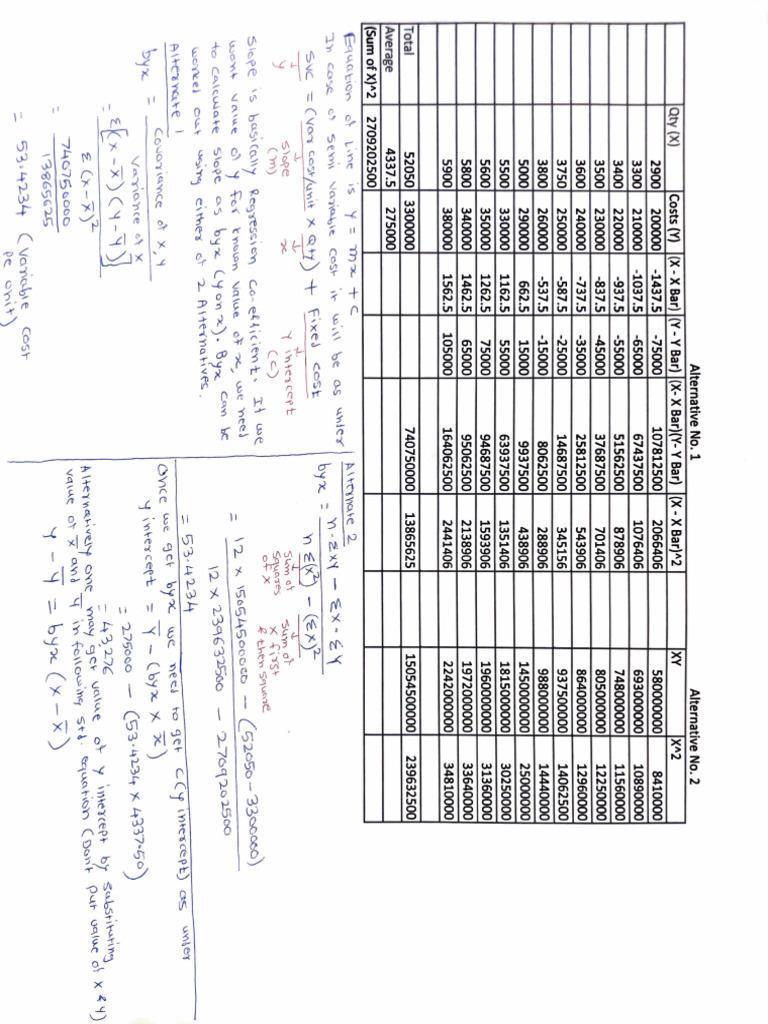 Alternative No. 1 Alternative No. 2
Qty (X) Costs (Y) (X - X Bar) (Y - Y Bar) (X- X Bar)(Y- Y Bar) (X - X Bar)^2 XY X^2
2900 200000 -1437.5 -75000 107812500 2066406 580000000 8410000
3300 210000 -1037.5 -65000 67437500 1076406 693000000 10890000
3400 220000 -937.5 -55000 51562500 878906 748000000 11560000
3500 230000 -837.5 -45000 37687500 701406 805000000 12250000
3600 240000 -737.5 -35000 25812500 543906 864000000 12960000
3750 250000 -587.5 -25000 14687500 345156 937500000 14062500
3800 260000 -537.5 -15000 8062500 288906 988000000 14440000
5000 290000 662.5 15000 9937500 438906 1450000000 25000000
5500 330000 1162.5 55000 63937500 1351406 1815000000 30250000
5600 350000 1262.5 75000 94687500 1593906 1960000000 31360000
5800 340000 1462.5 65000 95062500 2138906 1972000000 33640000
5900 380000 1562.5 105000 164062500 2441406 2242000000 34810000
Total 52050 3300000 740750000 13865625 15054500000 239632500
Average 4337.5 275000
(Sum of X)^2 2709202500
Equation of Line is y = mx + c
In case of semi variable cost it will be as under
SVC = (Var cost/unit × Qty) + Fixed cost
↓ ↓ ↓ ↓
y slope x Y intercept
(m) (C)
Slope is basically Regression Co-efficient. If we
want value of y for known value of x, we need
to calculate slope as byx (y on x). Byx can be
worked out using either of 2 Alternatives.
Alternate 1
byx = Covariance of x, y
Variance of x
= Σ[(x - x̄) (y - ȳ)]
Σ (x - x̄)²
= 740750000
13865625
= 53.4234 (Variable cost
pe unit)
Alternate 2
byx = n·Σxy - Σx·Σy
n Σ(x²) - (Σx)²
↓ ↓
sum of squares of x sum of x first & then square
= 12 × 15054500000 - (52050 - 3300000)
12 × 239632500 - 2709202500
= 53.4234
Once we get byx we need to get C (y intercept) as under
y intercept = ȳ - (byx × x̄)
= 275000 - (53.4234 × 4337.50)
= 43,276
Alternatively one may get value of y intercept by substituting
value of x̄ and ȳ in following std. equation (Dont put value of x & y)
y - ȳ = byx (x - x̄)